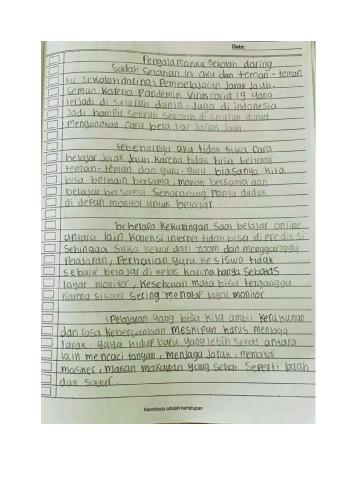 Date:
Pengalamanku sekolah daring
Sudah setahun ini aku dan teman-teman
ku sekolah daring, Pembelajaran Jarak Jauh.
Semua karena Pandemik Virus covid 19 yang
terjadi di seluruh dunia. Juga di indonesia
Jadi hampir seluruh sekolah di seluruh dunia
mengunakan cara belajar Jarak Jauh.
Sebenarnya aku tidak suka cara
belajar Jarak Jauh karena tidak bisa bertemu
teman-teman dan guru-guru, biasanya kita
bisa bermain bersama, makan bersama dan
belajar bersama. Senarorang hanya duduk
di depan monitor untuk belajar.
beberapa kekurangan saat belajar online
antara lain koneksi internet tidak bisa di Prediksi
Sehingga suka keluar dari zoom dan mengganggu
Pelajaran, Perhatian guru ke siswa tidak
sebaik belajar di kelas karena hanya sebatas
layar monitor, Kesehatan mata bisa terganggu
karena siswa sering menatap layar monitor
Pelajaran yang bisa kita ambil kerukunan
dan rasa kebersamaan meskipun harus menjaga
Jarak. gaya hidup baru yang lebih sehat antara
lain mencuci tangan, menjaga Jarak, memakai
masker, makan makanan yang sehat seperti buah
dan sayur.
Membaca adalah kehidupan